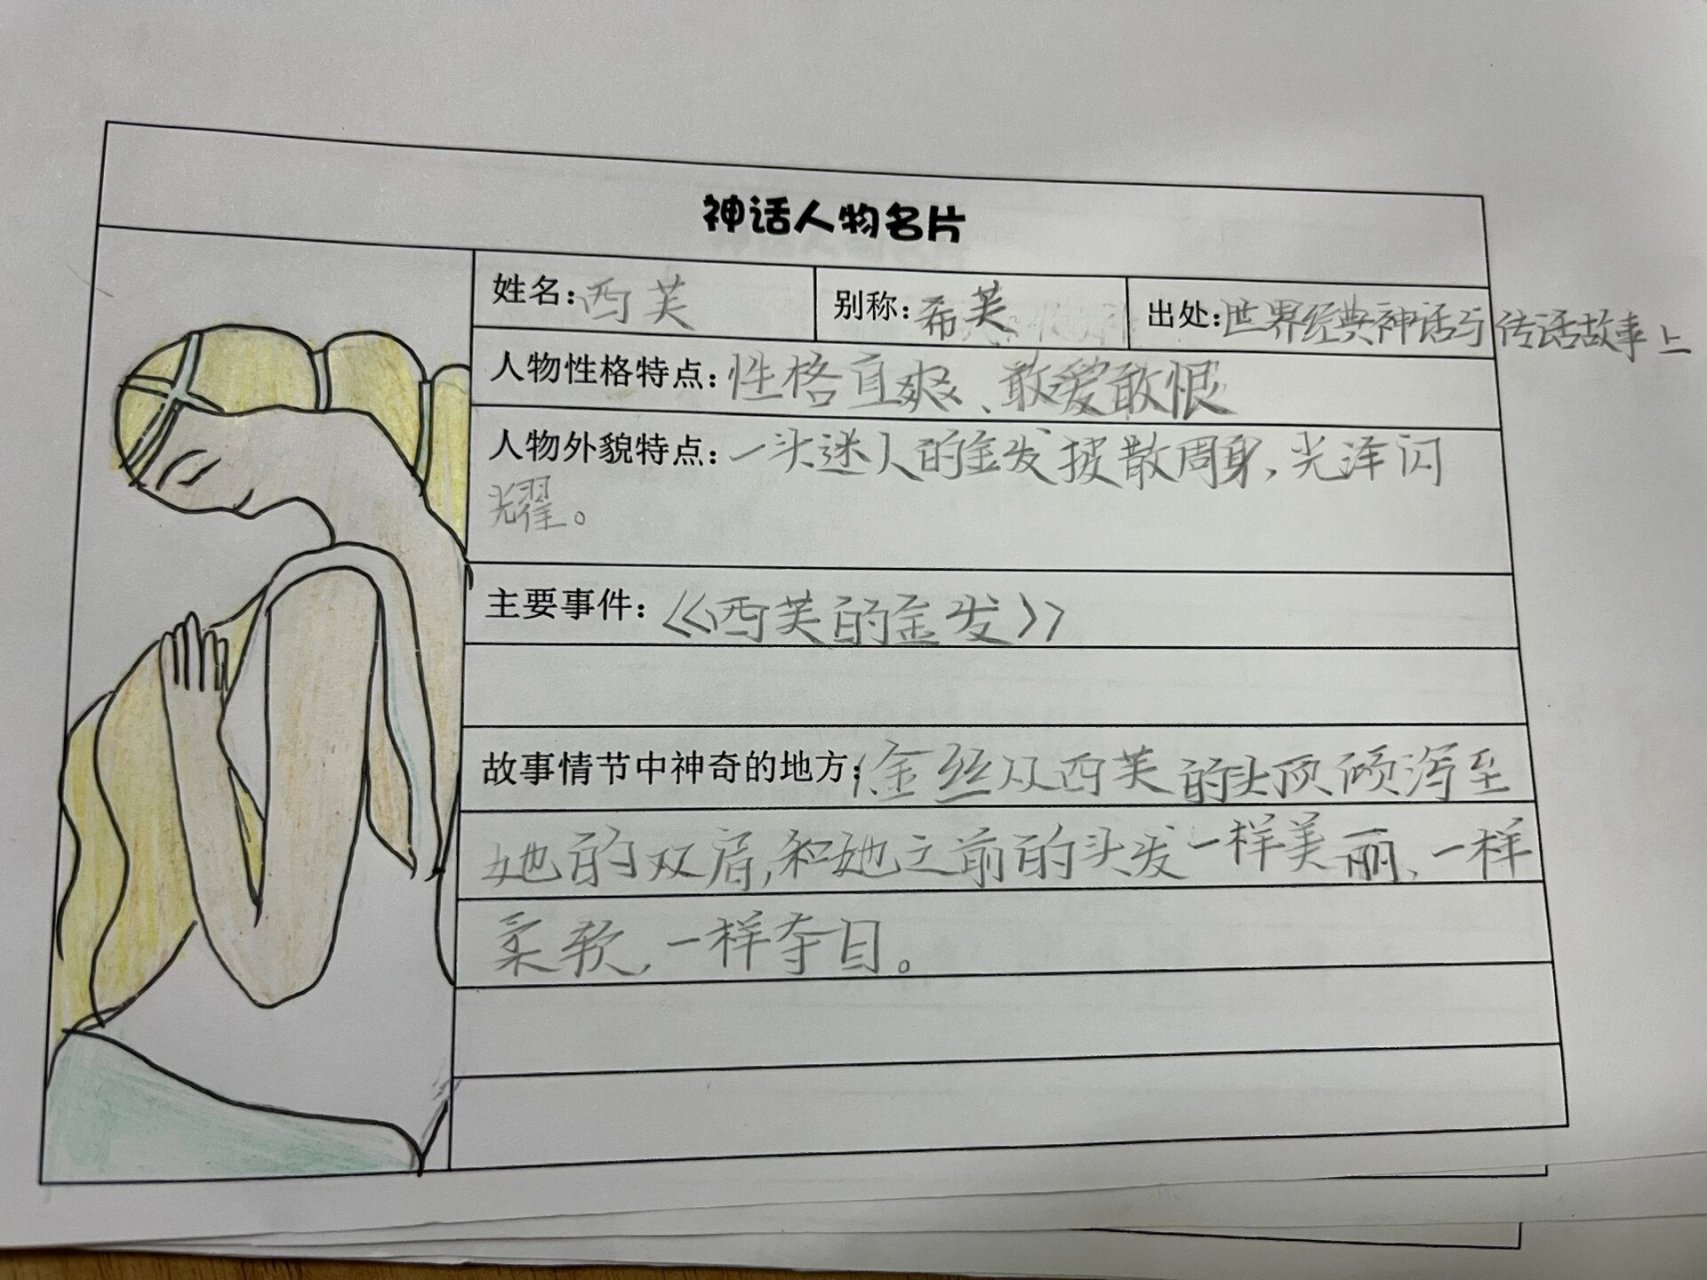 神话人物名片
姓名：西芙 别称：希芙 出处：世界经典神话与传说故事上
人物性格特点：性格直爽、敢爱敢恨
人物外貌特点：一头迷人的金发披散周身，光泽闪
耀。
主要事件：《西芙的金发》
故事情节中神奇的地方：金丝从西芙的头顶倾泻至
她的双肩，和她之前的头发一样美丽、一样
柔软，一样夺目。